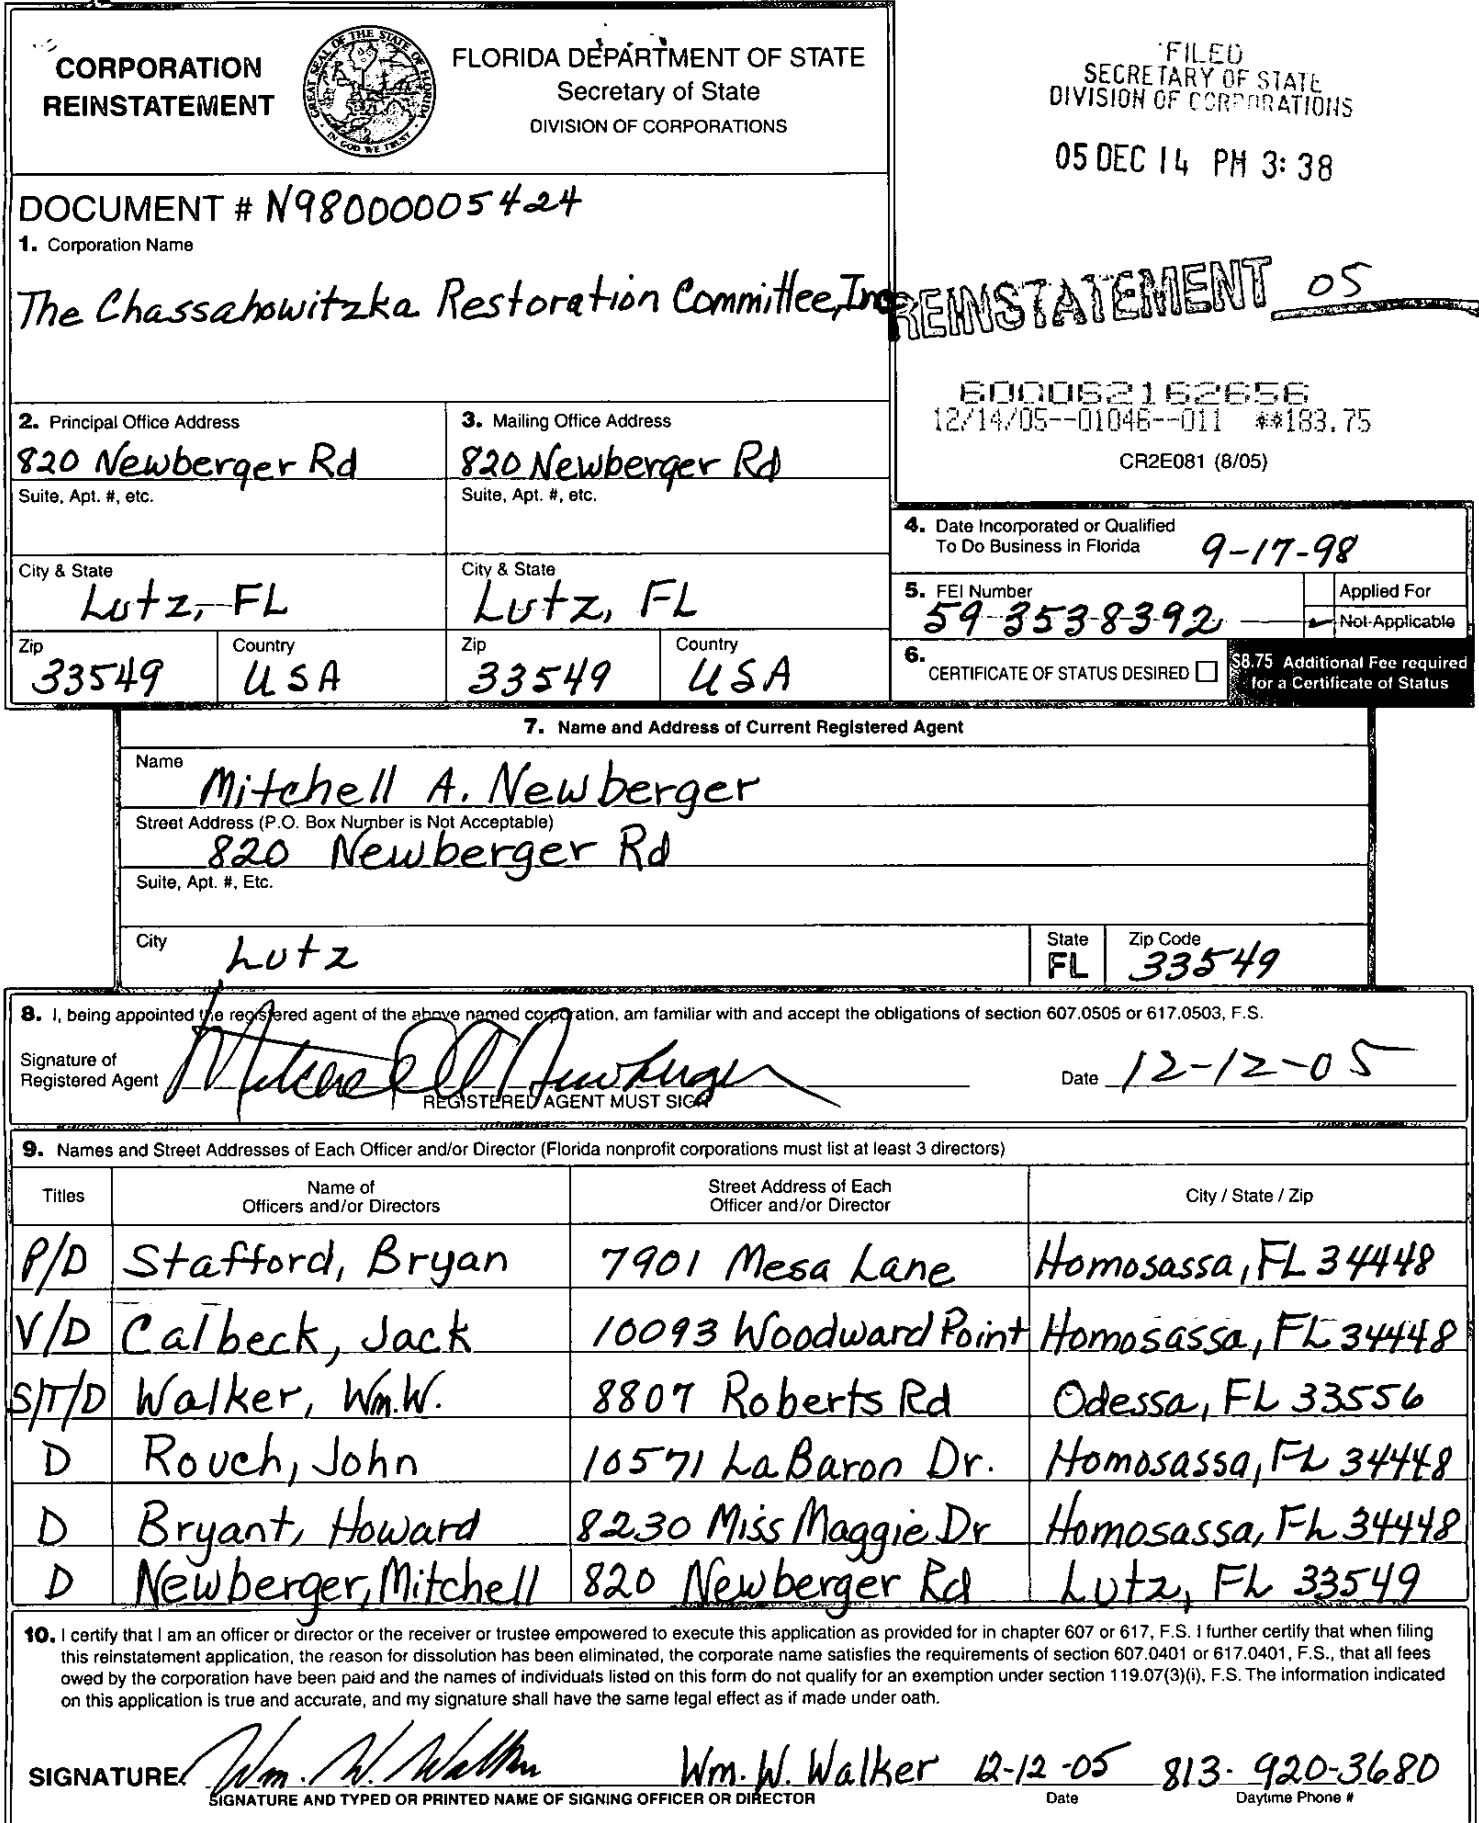 CORPORATION
REINSTATEMENT
GREAT SEAL OF THE STATE OF FLORIDA
IN GOD WE TRUST
FLORIDA DEPARTMENT OF STATE
Secretary of State
DIVISION OF CORPORATIONS
FILED
SECRETARY OF STATE
DIVISION OF CORPORATIONS
05 DEC 14 PM 3:38
DOCUMENT # N98000005424
1. Corporation Name
The Chassahowitzka Restoration Committee, Inc
REINSTATEMENT 05
600062162656
12/14/05--01046--011 **183.75
CR2E081 (8/05)
2. Principal Office Address
820 Newberger Rd
Suite, Apt. #, etc.
City & State
Lutz, FL
Zip
33549
Country
USA
3. Mailing Office Address
820 Newberger Rd
Suite, Apt. #, etc.
City & State
Lutz, FL
Zip
33549
Country
USA
4. Date Incorporated or Qualified
To Do Business in Florida
9-17-98
5. FEI Number
59-3538392
Applied For
Not Applicable
6. CERTIFICATE OF STATUS DESIRED
$8.75 Additional Fee required
for a Certificate of Status
7. Name and Address of Current Registered Agent
Name
Mitchell A. Newberger
Street Address (P.O. Box Number is Not Acceptable)
820 Newberger Rd
Suite, Apt. #, Etc.
City
Lutz
State
FL
Zip Code
33549
8. I, being appointed the registered agent of the above named corporation, am familiar with and accept the obligations of section 607.0505 or 617.0503, F.S.
Signature of
Registered Agent
Mitchell A Newberger
REGISTERED AGENT MUST SIGN
Date 12-12-05
9. Names and Street Addresses of Each Officer and/or Director (Florida nonprofit corporations must list at least 3 directors)
Titles
Name of
Officers and/or Directors
Street Address of Each
Officer and/or Director
City / State / Zip
P/D Stafford, Bryan 7901 Mesa Lane Homosassa, FL 34448
V/D Calbeck, Jack 10093 Woodward Point Homosassa, FL 34448
S/T/D Walker, Wm. W. 8807 Roberts Rd Odessa, FL 33556
D Rouch, John 10571 LaBaron Dr. Homosassa, FL 34448
D Bryant, Howard 8230 Miss Maggie Dr Homosassa, FL 34448
D Newberger, Mitchell 820 Newberger Rd Lutz, FL 33549
10. I certify that I am an officer or director or the receiver or trustee empowered to execute this application as provided for in chapter 607 or 617, F.S. I further certify that when filing
this reinstatement application, the reason for dissolution has been eliminated, the corporate name satisfies the requirements of section 607.0401 or 617.0401, F.S., that all fees
owed by the corporation have been paid and the names of individuals listed on this form do not qualify for an exemption under section 119.07(3)(i), F.S. The information indicated
on this application is true and accurate, and my signature shall have the same legal effect as if made under oath.
SIGNATURE: Wm. W. Walker Wm. W. Walker 12-12-05 813-920-3680
SIGNATURE AND TYPED OR PRINTED NAME OF SIGNING OFFICER OR DIRECTOR
Date
Daytime Phone #